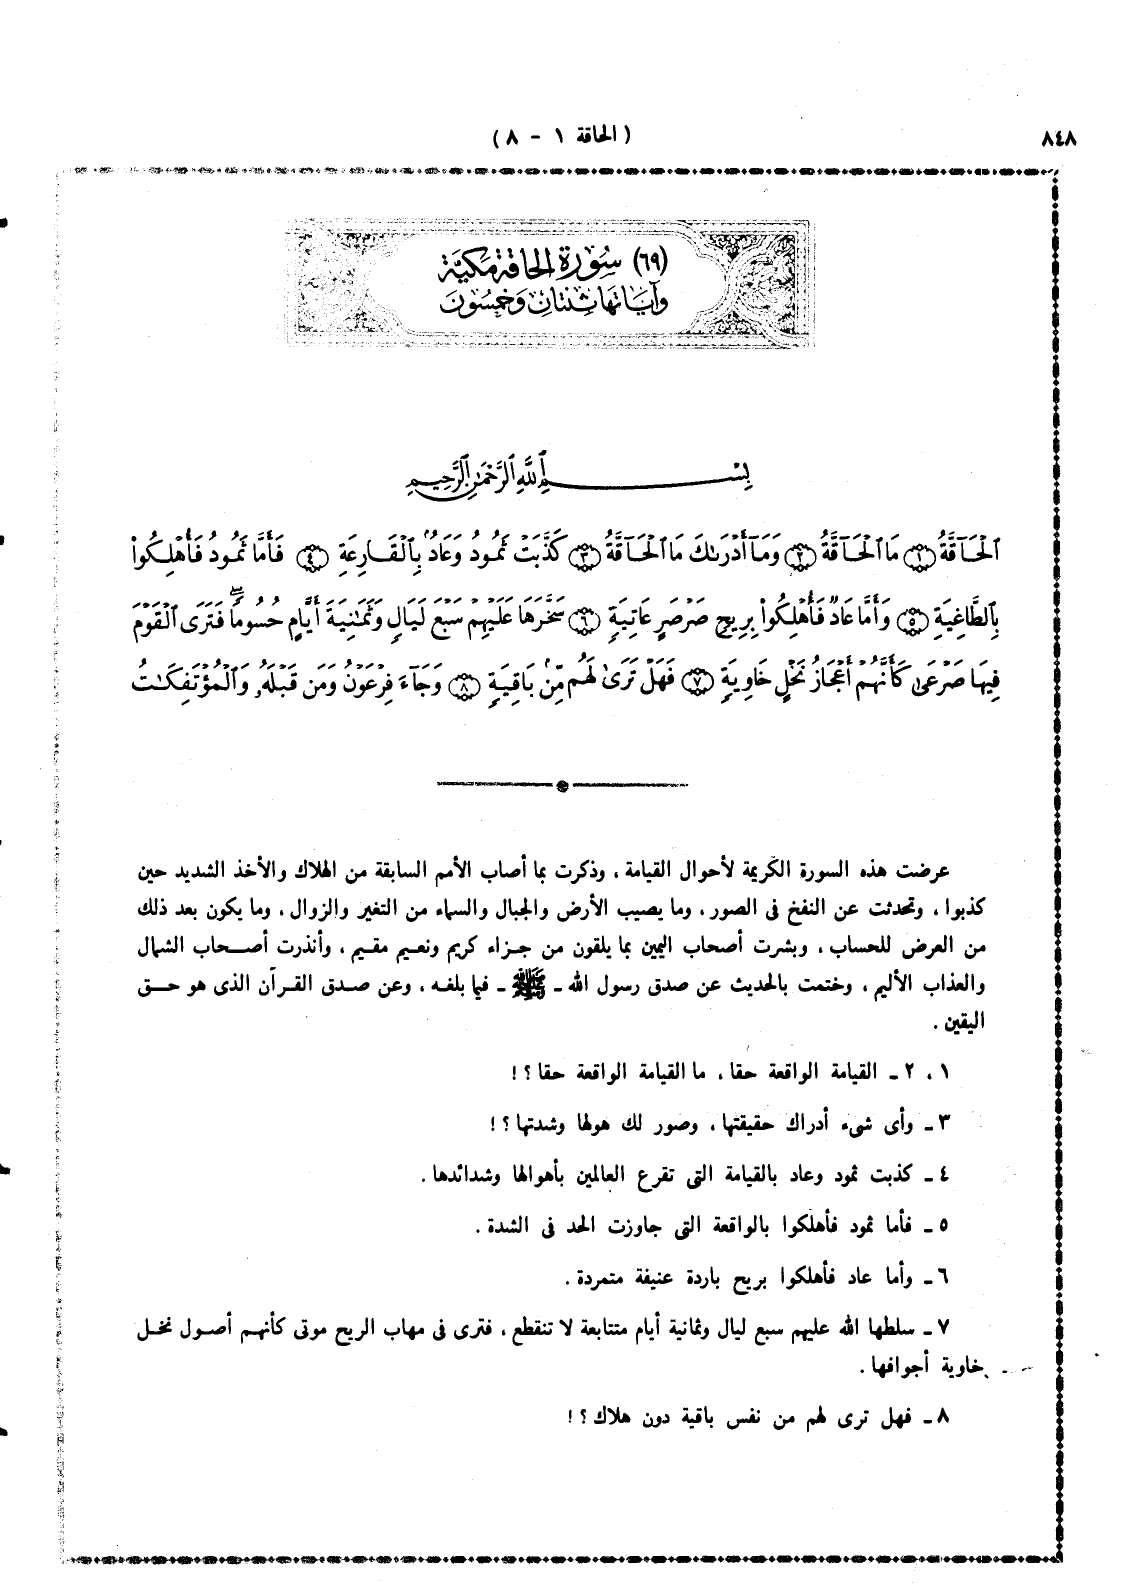 ٨٤٨
( الحاقة ١ - ٨ )
(٦٩) سُورَة الحاقة مَكيَّة
وَآيَاتهَا ثِنْتَانِ وَخَمسُونَ
بِسْمِ ٱللَّهِ ٱلرَّحْمَٰنِ ٱلرَّحِيمِ
ٱلْحَآقَّةُ ﴿١﴾ مَا ٱلْحَآقَّةُ ﴿٢﴾ وَمَآ أَدْرَىٰكَ مَا ٱلْحَآقَّةُ ﴿٣﴾ كَذَّبَتْ ثَمُودُ وَعَادٌۢ بِٱلْقَارِعَةِ ﴿٤﴾ فَأَمَّا ثَمُودُ فَأُهْلِكُوا۟
بِٱلطَّاغِيَةِ ﴿٥﴾ وَأَمَّا عَادٌ فَأُهْلِكُوا۟ بِرِيحٍ صَرْصَرٍ عَاتِيَةٍ ﴿٦﴾ سَخَّرَهَا عَلَيْهِمْ سَبْعَ لَيَالٍ وَثَمَٰنِيَةَ أَيَّامٍ حُسُومًا ۖ فَتَرَى ٱلْقَوْمَ
فِيهَا صَرْعَىٰ كَأَنَّهُمْ أَعْجَازُ نَخْلٍ خَاوِيَةٍ ﴿٧﴾ فَهَلْ تَرَىٰ لَهُم مِّنۢ بَاقِيَةٍ ﴿٨﴾ وَجَآءَ فِرْعَوْنُ وَمَن قَبْلَهُۥ وَٱلْمُؤْتَفِكَٰتُ
عرضت هذه السورة الكريمة لأحوال القيامة ، وذكرت بما أصاب الأمم السابقة من الهلاك والأخذ الشديد حين
كذبوا ، وتحدثت عن النفخ فى الصور ، وما يصيب الأرض والجبال والسماء من التغير والزوال ، وما يكون بعد ذلك
من العرض للحساب ، وبشرت أصحاب اليمين بما يلقون من جزاء كريم ونعيم مقيم ، وأنذرت أصحاب الشمال
والعذاب الأليم ، وختمت بالحديث عن صدق رسول الله ـ ﷺ ـ فيما بلغه ، وعن صدق القرآن الذى هو حق
اليقين .
١ ، ٢ ـ القيامة الواقعة حقا ، ما القيامة الواقعة حقا ؟ !
٣ ـ وأى شىء أدراك حقيقتها ، وصور لك هولها وشدتها ؟ !
٤ ـ كذبت ثمود وعاد بالقيامة التى تقرع العالمين بأهوالها وشدائدها .
٥ ـ فأما ثمود فأهلكوا بالواقعة التى جاوزت الحد فى الشدة .
٦ ـ وأما عاد فأهلكوا بريح باردة عنيفة متمردة .
٧ ـ سلطها الله عليهم سبع ليال وثمانية أيام متتابعة لا تنقطع ، فترى فى مهاب الريح موتى كأنهم أصول نخل
خاوية أجوافها .
٨ ـ فهل ترى لهم من نفس باقية دون هلاك ؟ !